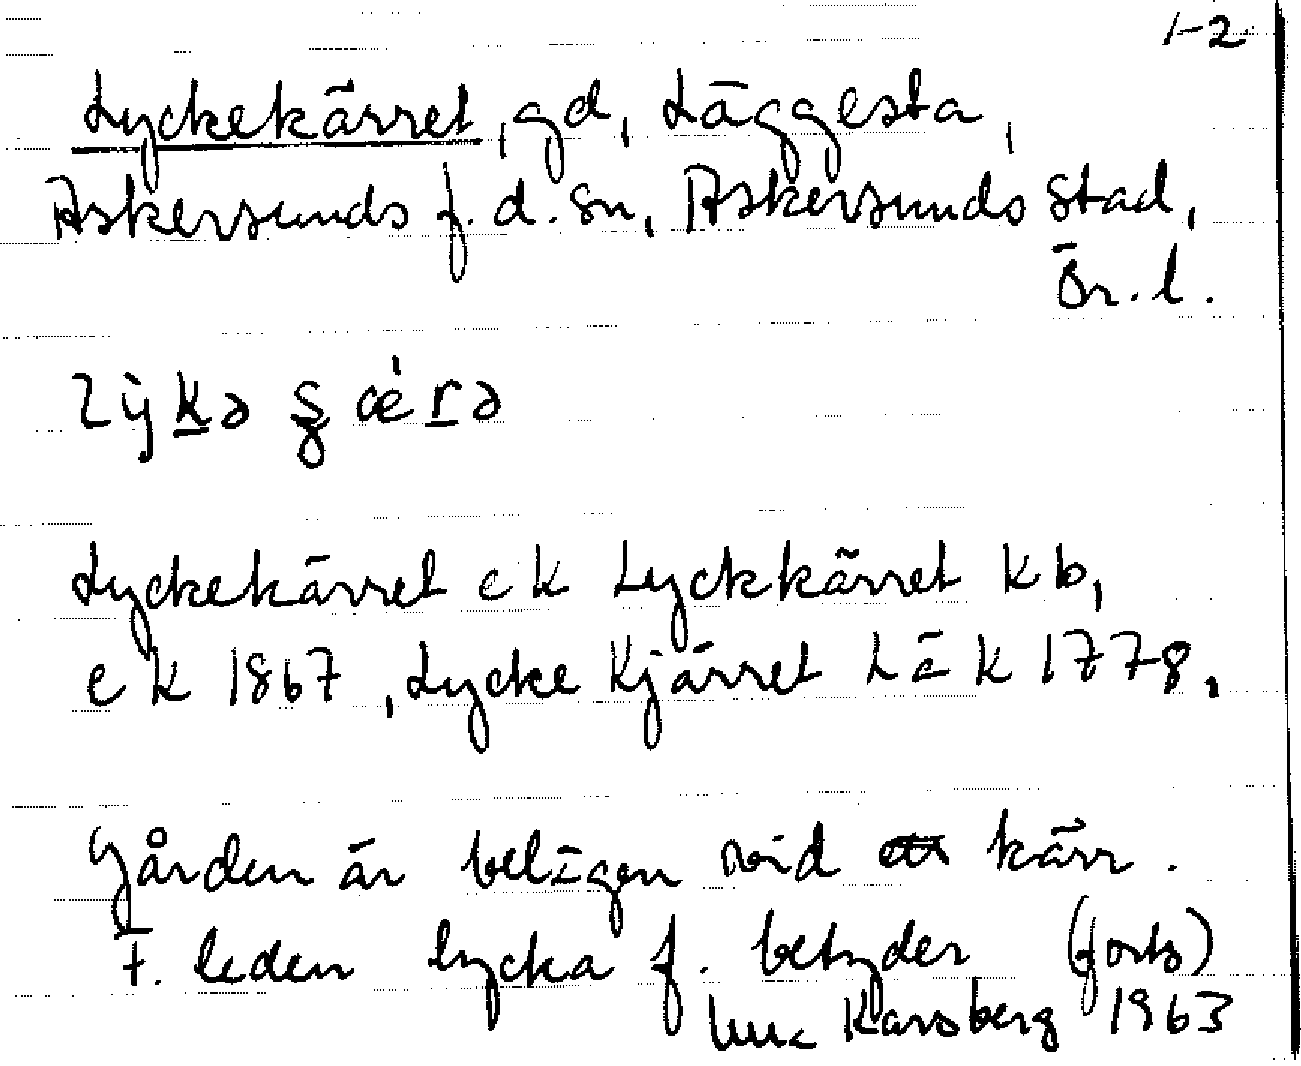 1-2
Lyckekärret, gd, Läggesta,
Askersunds f.d. sn, Askersunds stad,
Ör. l.
Lyckekärret ek Lyckkärret kb,
ek 1867, Lycke Kjärret Läk 1778.
Gården är belägen vid ett kärr.
F. leden lycka f. betyder (forts)
Karsberg 1963